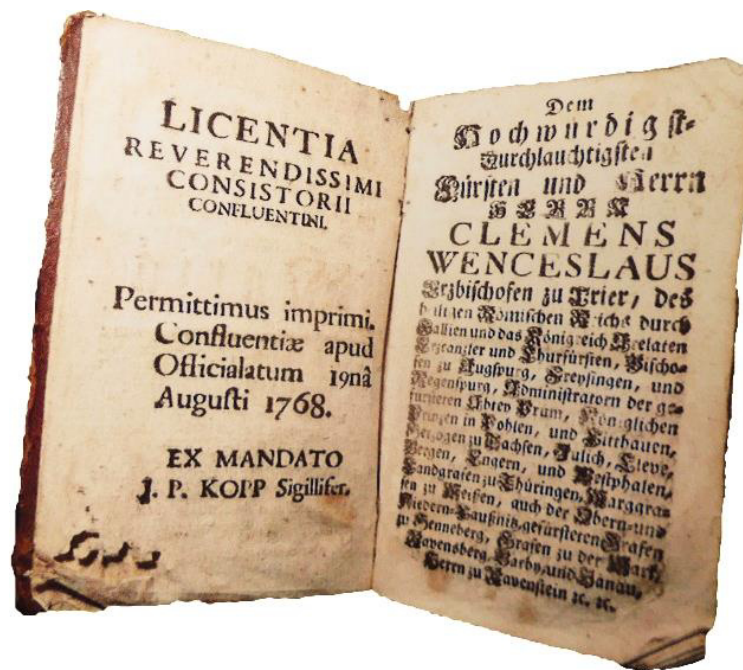 LICENTIA
REVERENDISSIMI
CONSISTORII
CONFLUENTINI.
Permittimus imprimi.
Confluentiæ apud
Officialatum 19nâ
Augusti 1768.
EX MANDATO
J. P. KOPP Sigillifer.
Dem
Hochwürdigst-
Durchlauchtigsten
Fürsten und Herrn
HERRN
CLEMENS
WENCESLAUS
Erzbischofen zu Trier, des
heiligen Römischen Reichs durch
Gallien und das Königreich Arelaten
Erzkanzler und Churfürsten, Bischo-
fen zu Augspurg, Freysingen, und
Regenspurg, Administratorn der ge-
fürsteten Abtey Prum, Königlichen
Prinzen in Pohlen, und Litthauen,
Herzogen zu Sachsen, Julich, Cleve,
Bergen, Engern, und Westphalen,
Landgrafen zu Thüringen, Marggra-
fen zu Meißen, auch der Obern- und
Niedern-Laußnitz, gefürsteren Grafen
zu Henneberg, Grafen zu der Mark,
Ravensberg, Barby, und Hanau,
Herrn zu Ravenstein ꝛc. ꝛc.